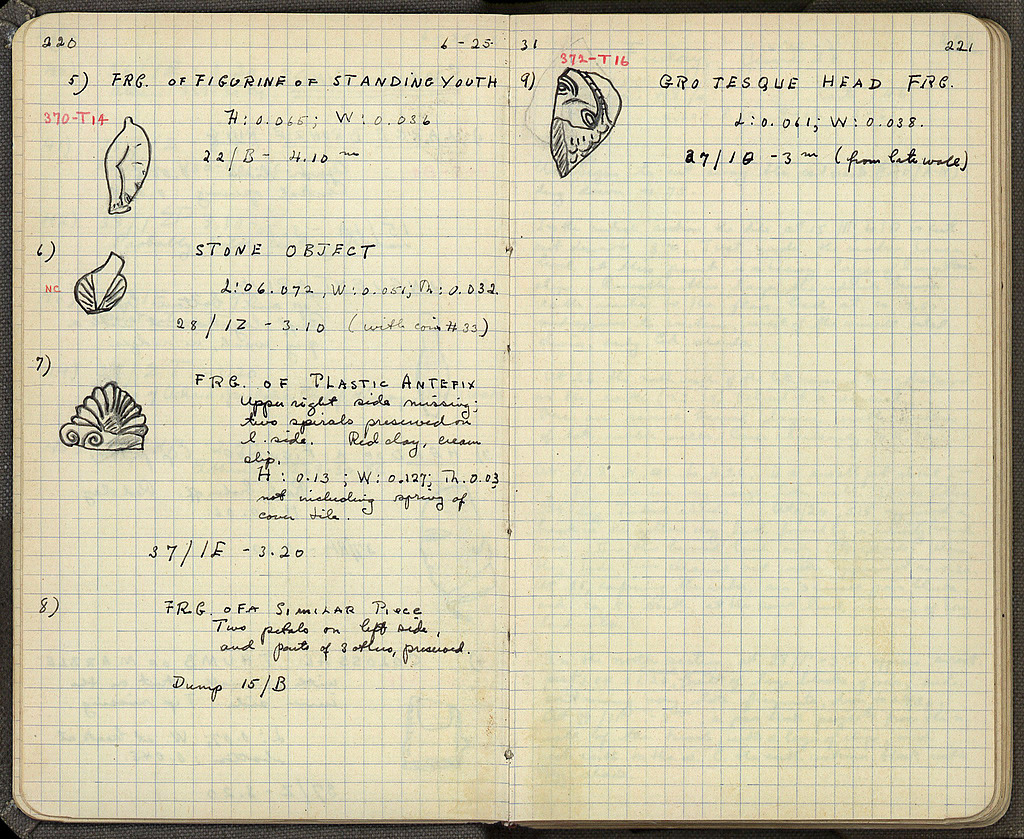 220
6 - 25 -
5) FRG. OF FIGURINE OF STANDING YOUTH
370-T14
H: 0.065; W: 0.036
22/B - 4.10 m
6) STONE OBJECT
NC
L: 06.072, W: 0.051; Th: 0.032.
28/1Z - 3.10 (with coin #33)
7)
FRG. OF PLASTIC ANTEFIX
Upper right side missing;
two spirals preserved on
l. side. Red clay, cream
slip.
H: 0.13; W: 0.127; Th. 0.03
not including spring of
cover tile.
37/1E - 3.20
8) FRG. OF A SIMILAR PIECE
Two petals on left side,
and parts of 3 others, preserved.
Dump 15/B
31
221
372-T16
9) GROTESQUE HEAD FRG.
L: 0.061; W: 0.038.
- 3 m (from late wall)